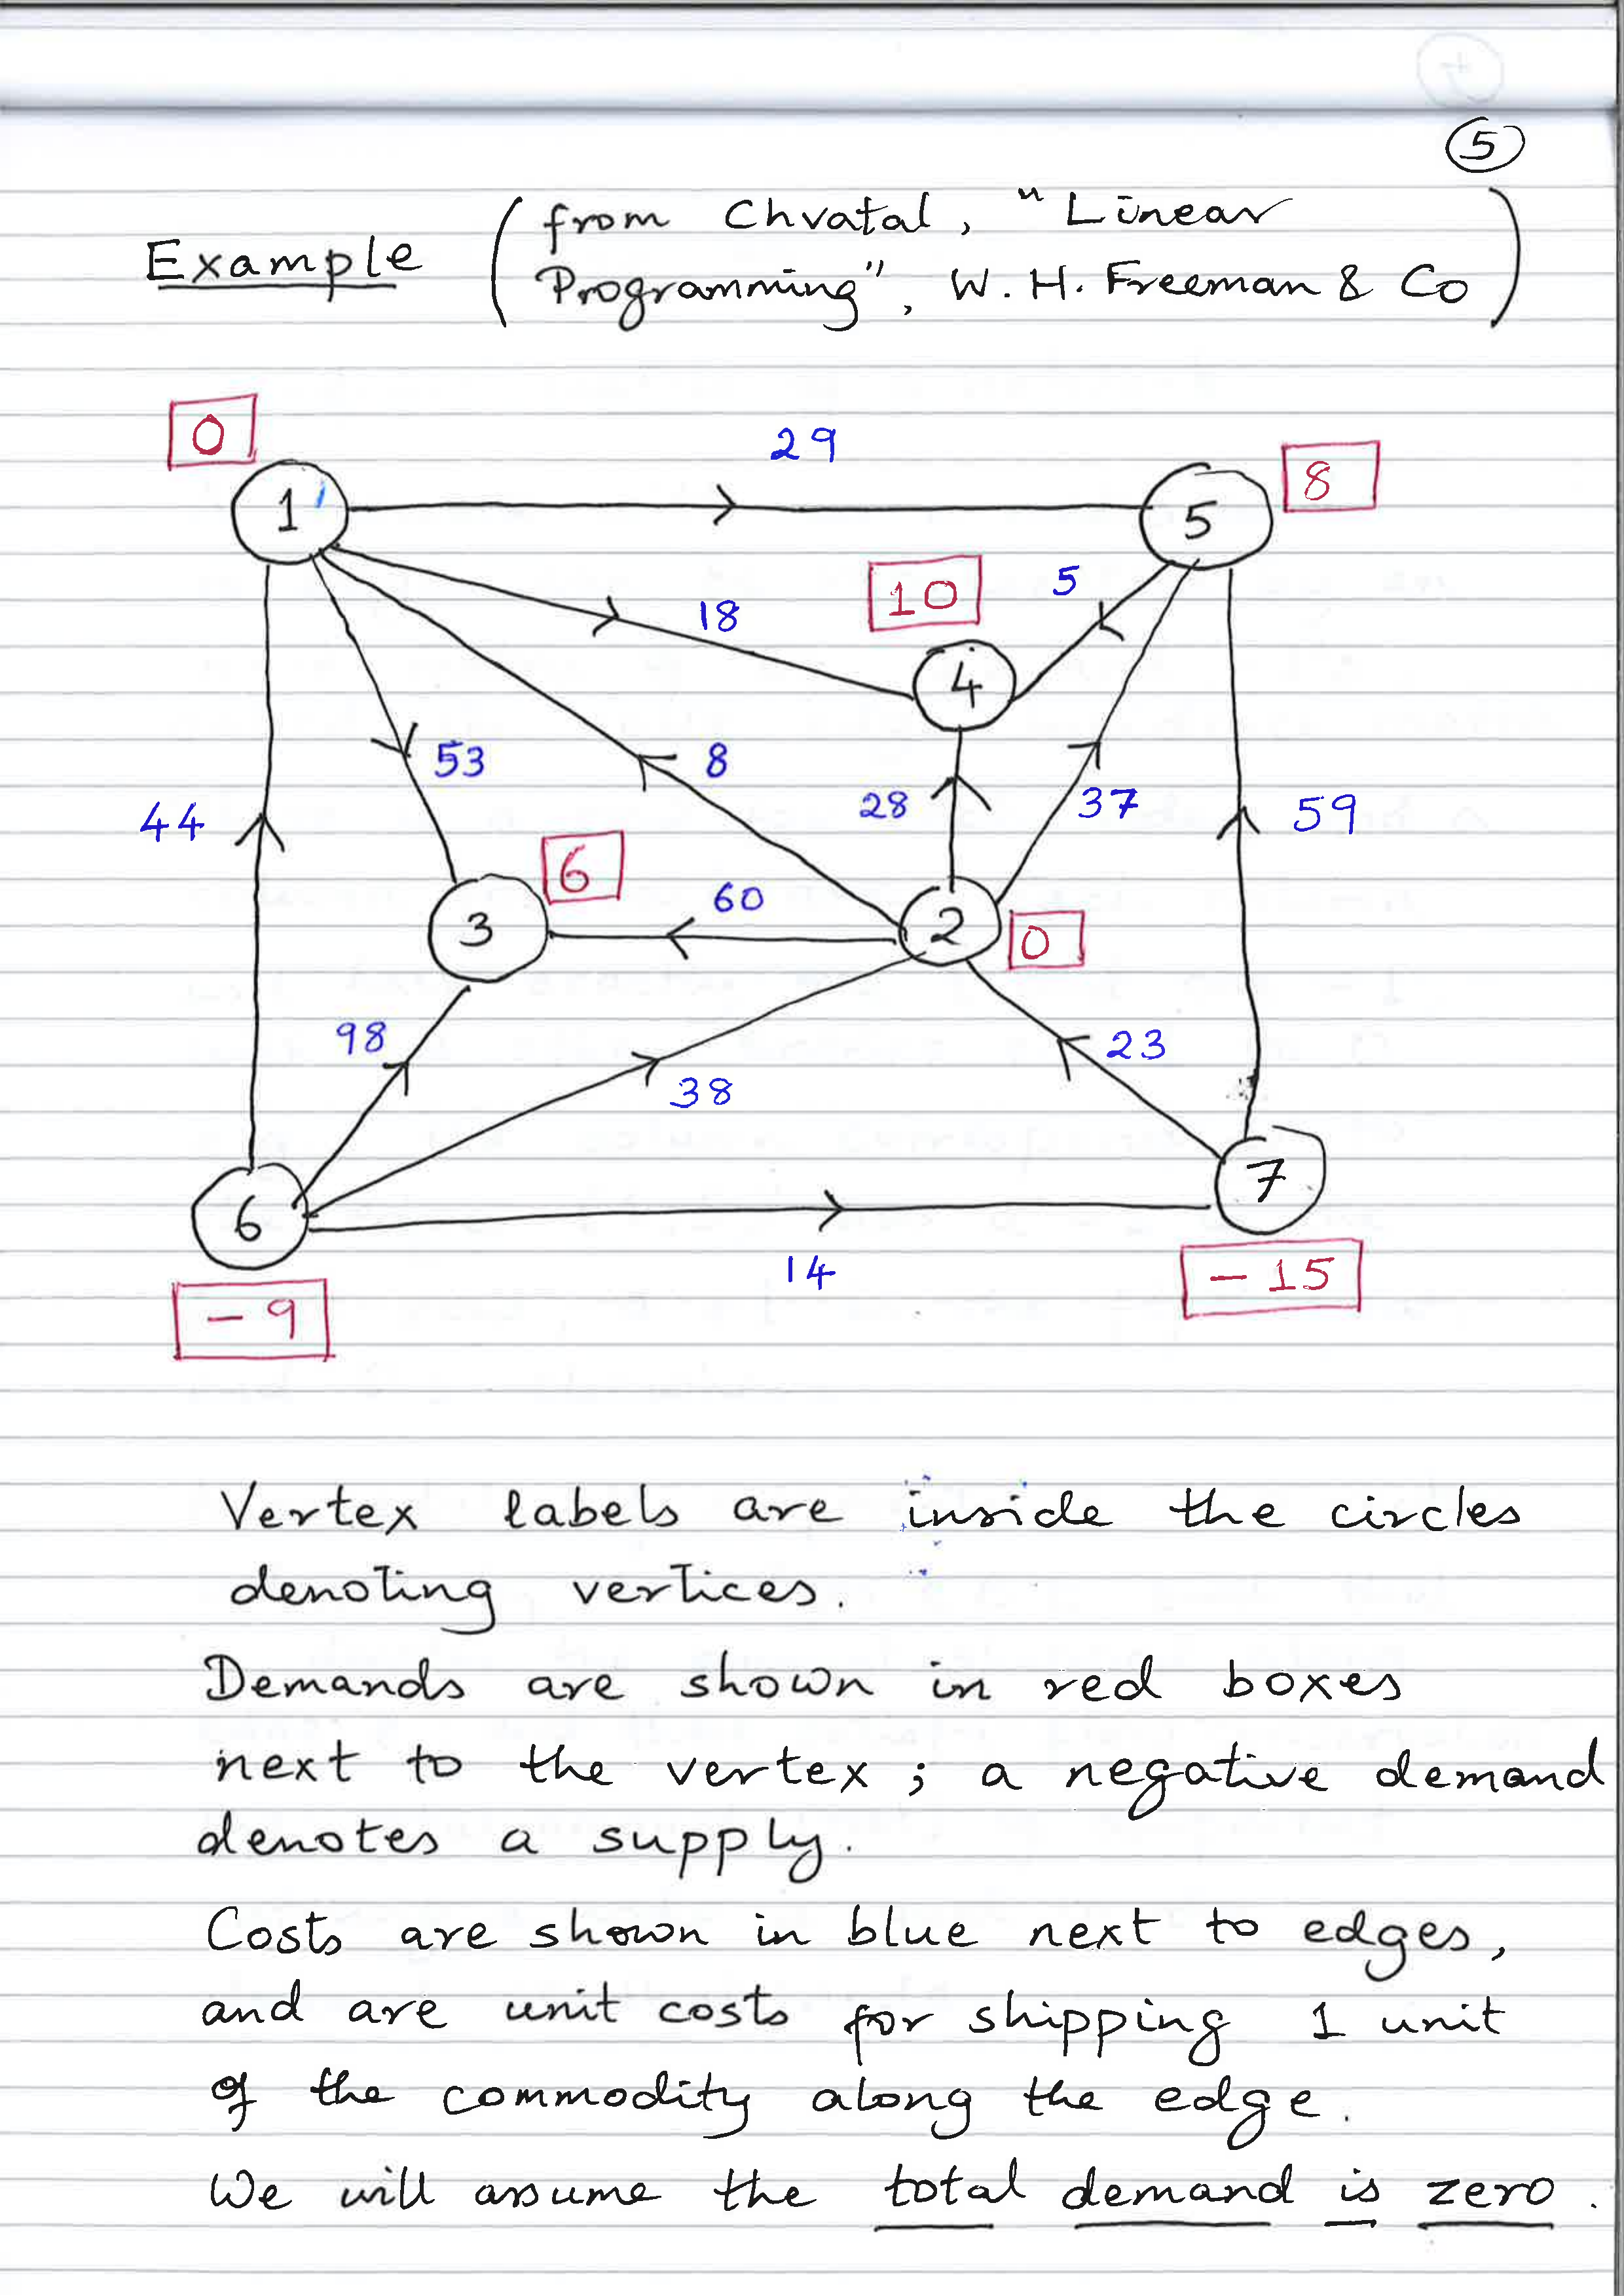 5
Example (from Chvatal, "Linear
Programming", W. H. Freeman & Co)
0
29
1
5
8
10
5
18
4
53
8
28
37
59
44
6
60
3
2
0
98
23
38
7
6
14
-15
-9
Vertex labels are inside the circles
denoting vertices.
Demands are shown in red boxes
next to the vertex; a negative demand
denotes a supply.
Costs are shown in blue next to edges,
and are unit costs for shipping 1 unit
of the commodity along the edge.
We will assume the total demand is zero.